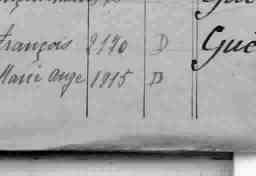 François 2190 D Gué
Marie Ange 1915 D